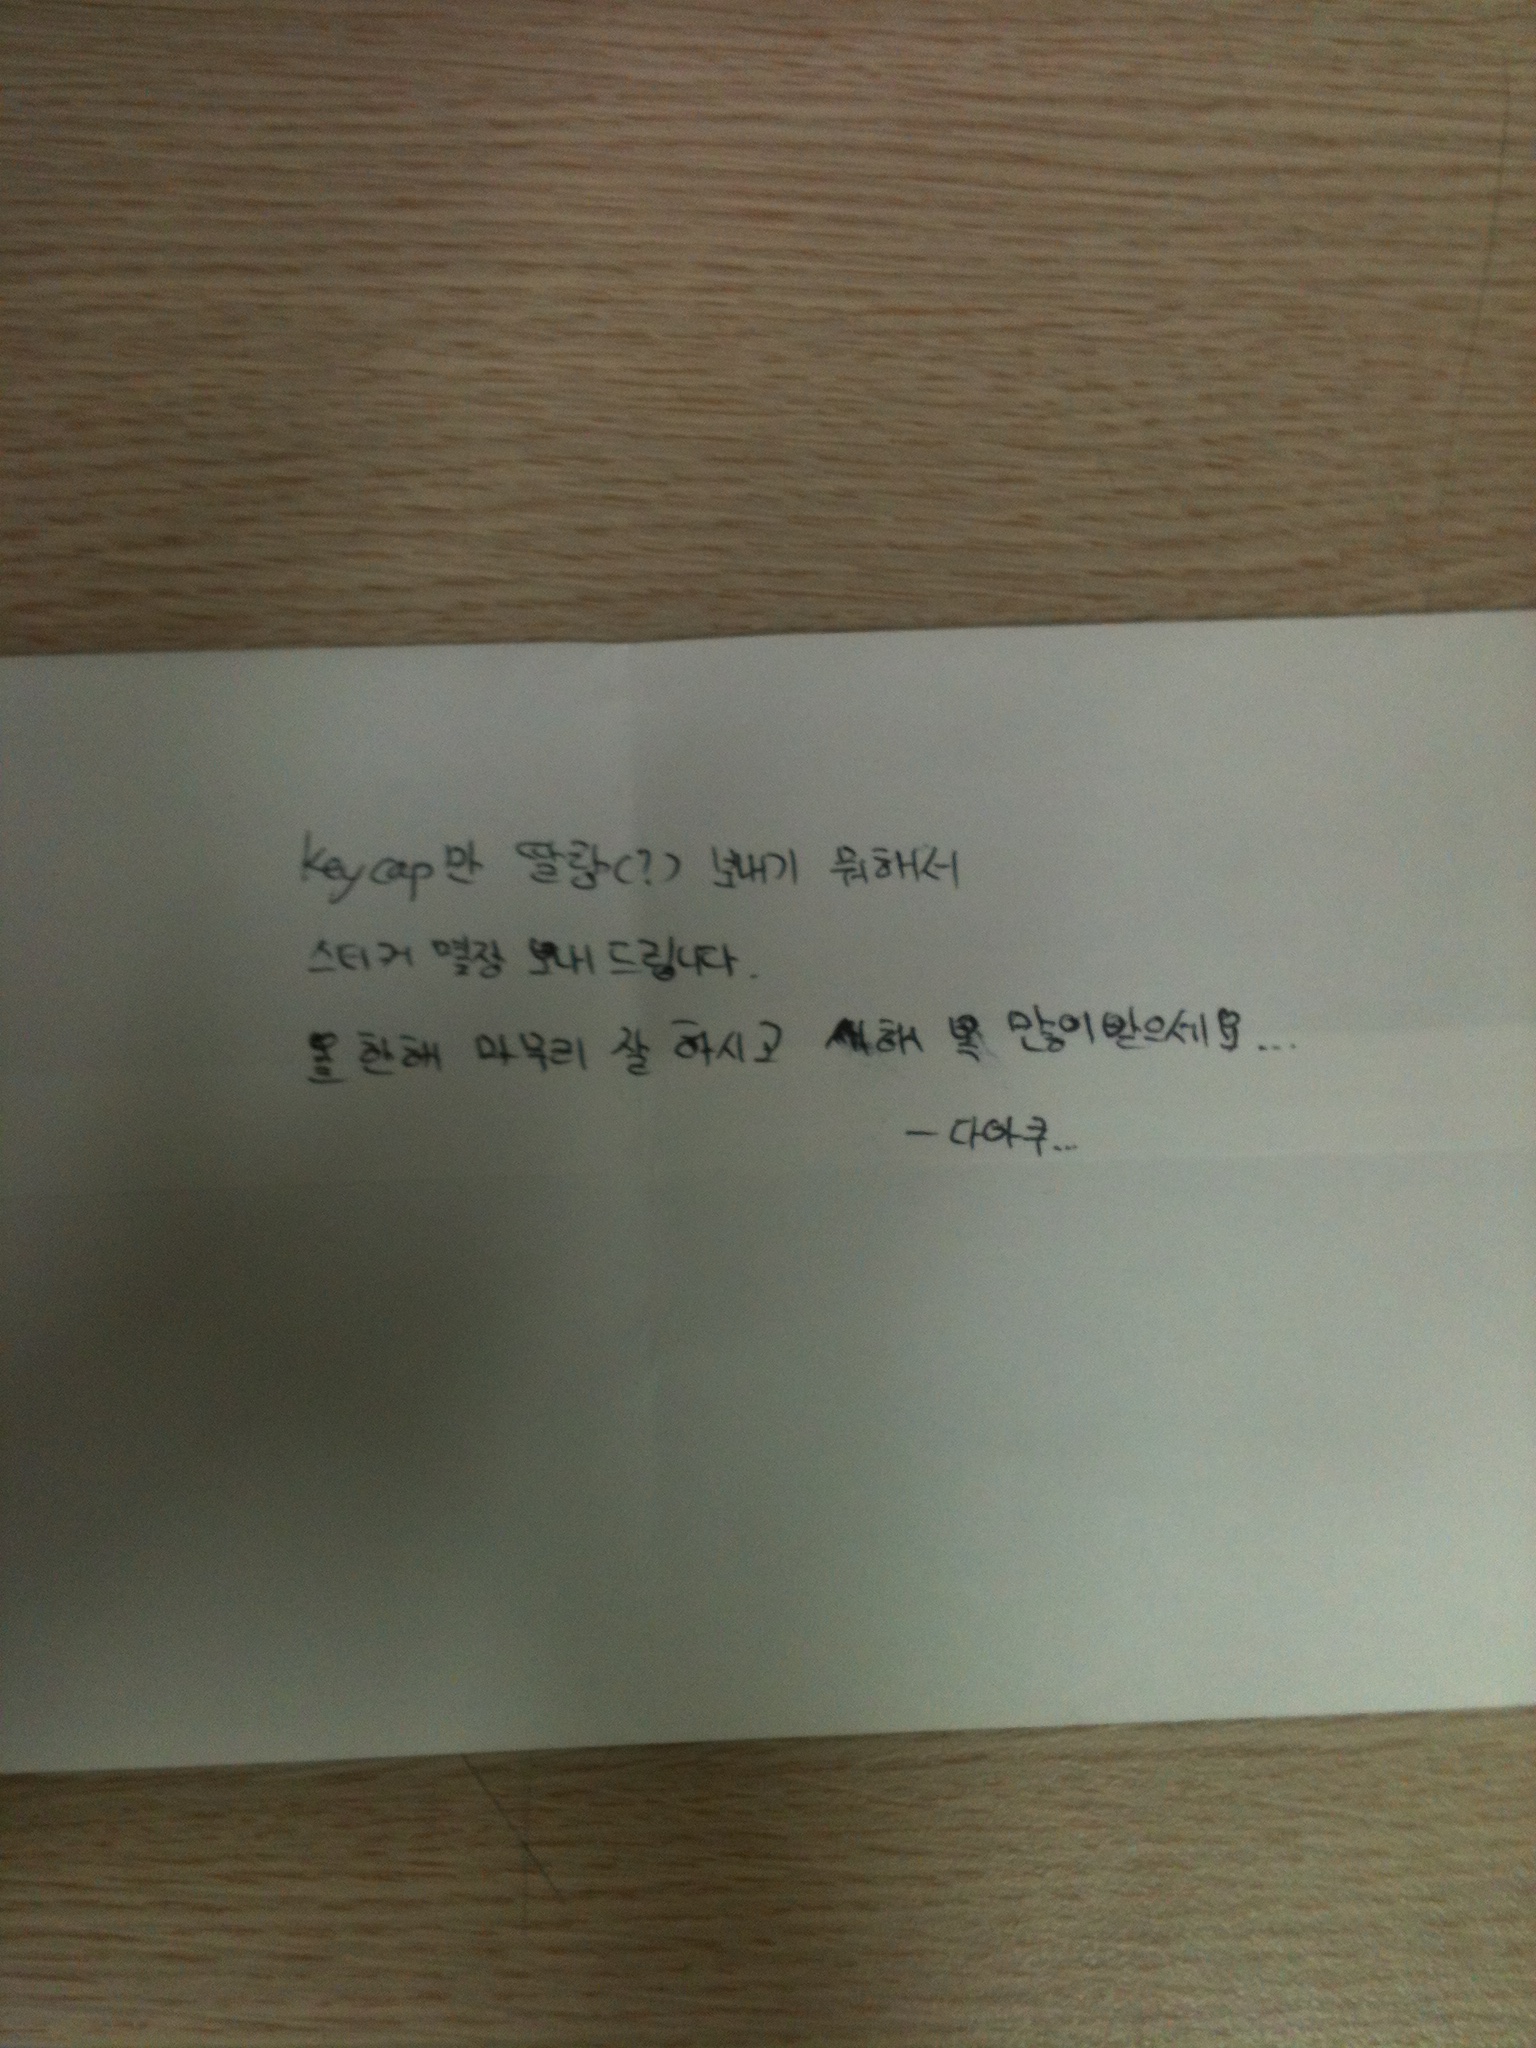 Keycap만 딸랑(?) 보내기 뭐해서
스티커 몇장 보내 드립니다.
올 한해 마무리 잘 하시고 새해 복 많이 받으세요...
- 다야쿠...